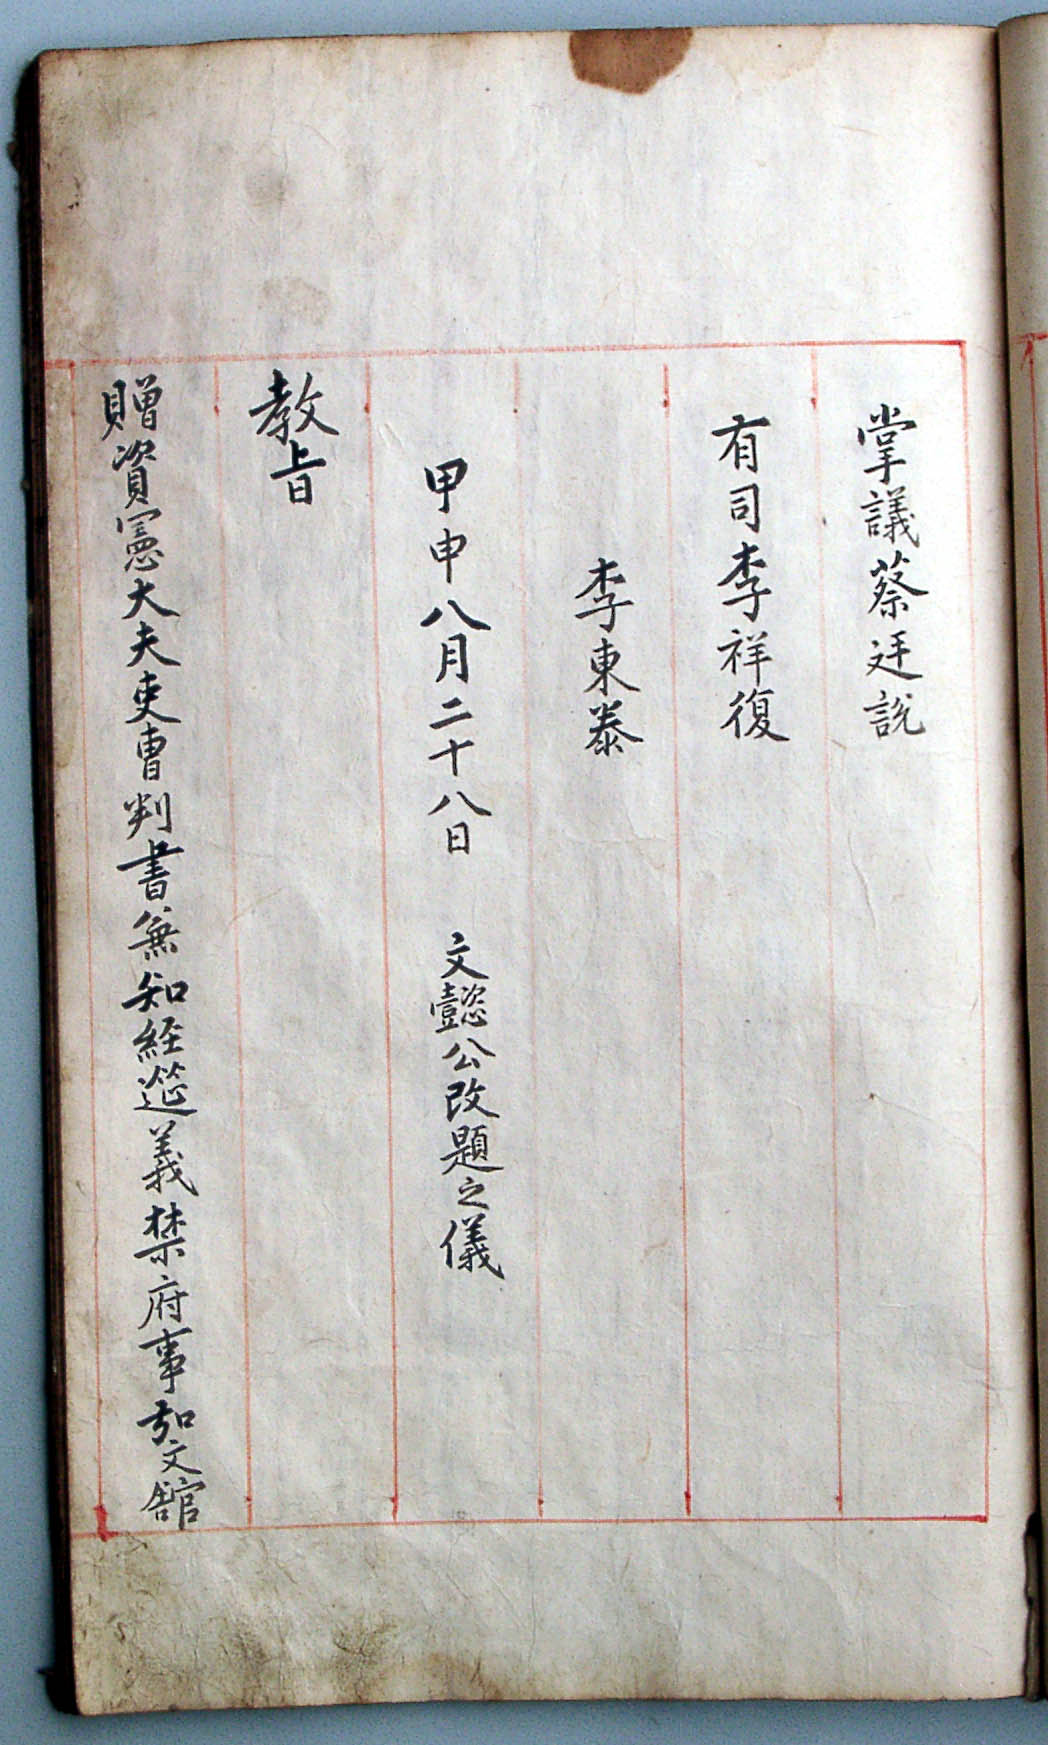 掌議蔡廷說
有司李祥復
李東泰
甲申八月二十八日 文懿公改題之儀
教旨
贈資憲大夫吏曹判書兼知經筵義禁府事弘文館